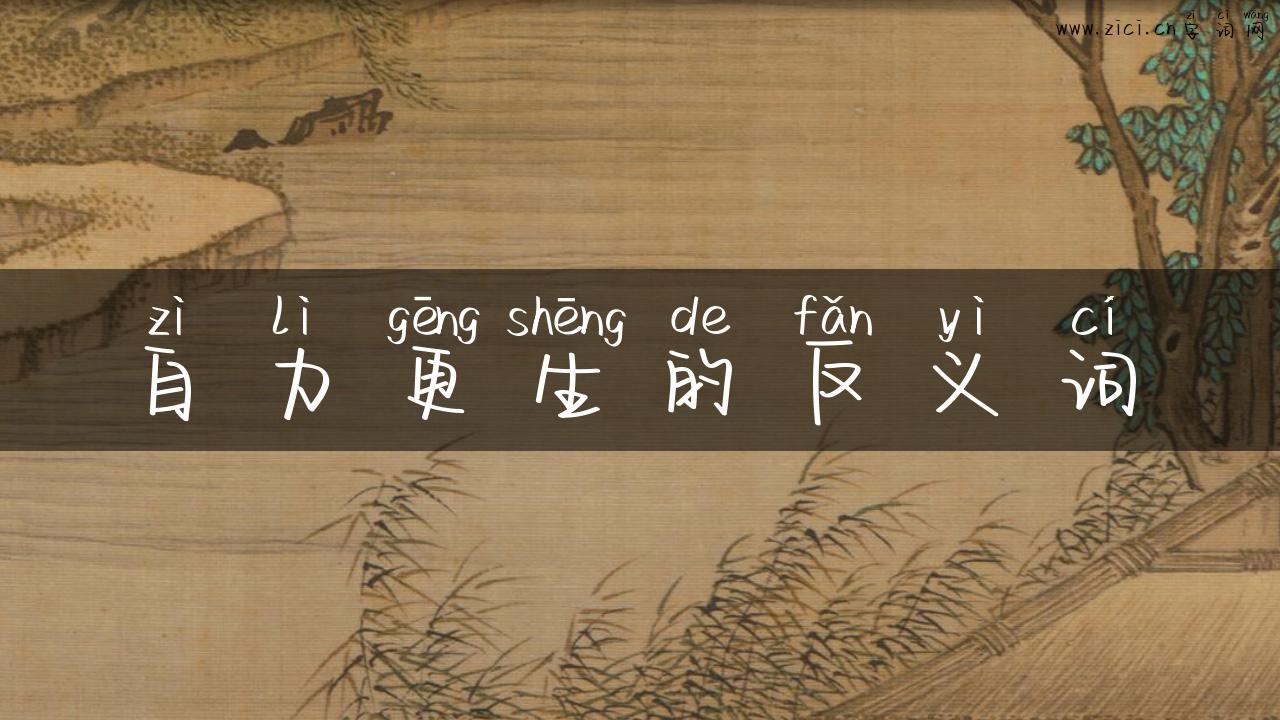 zì cí wǎng
www.zici.cn字词网
zì lì gēng shēng de fǎn yì cí
自力更生的反义词